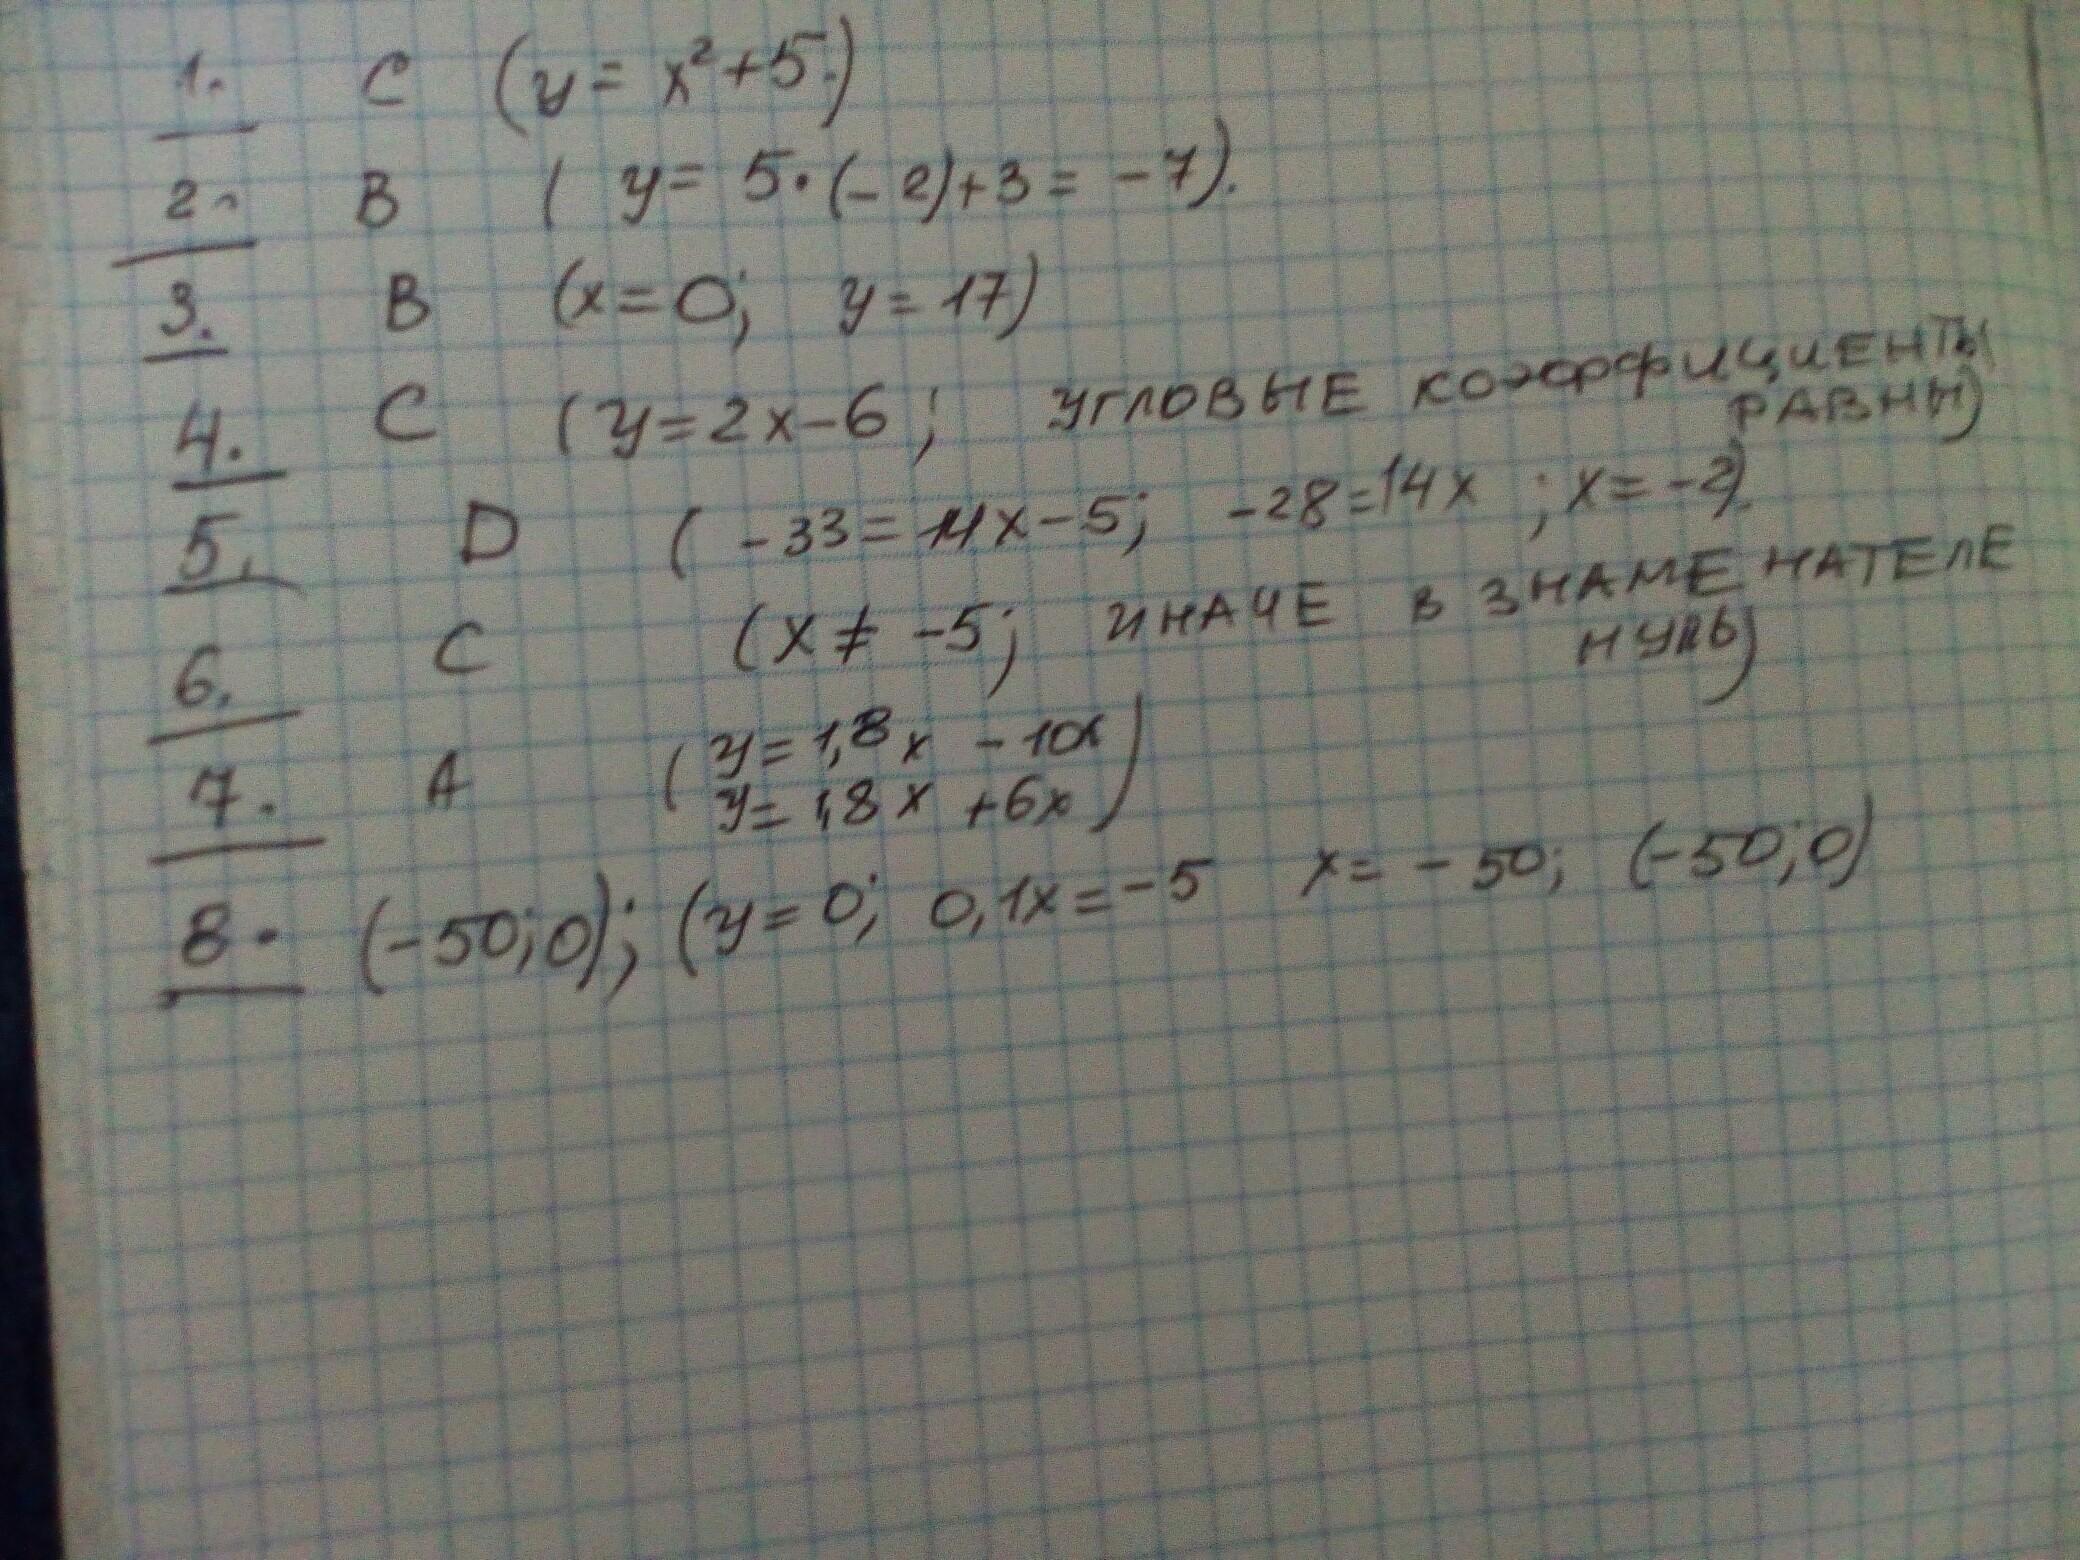 1. C (y = x²+5.)
2. B ( y = 5·(-2)+3 = -7).
3. B (x=0; y=17)
4. C (y=2x-6; УГЛОВЫЕ КОЭФФИЦИЕНТЫ
РАВНЫ)
5. D ( -33=14x-5; -28=14x ; x=-2).
6. C (x ≠ -5; ИНАЧЕ В ЗНАМЕНАТЕЛЕ
НУЛЬ)
7. A ( y=1,8x - 10x
y=1,8x +6x )
8. (-50;0); (y=0; 0,1x=-5 x= -50; (-50;0)